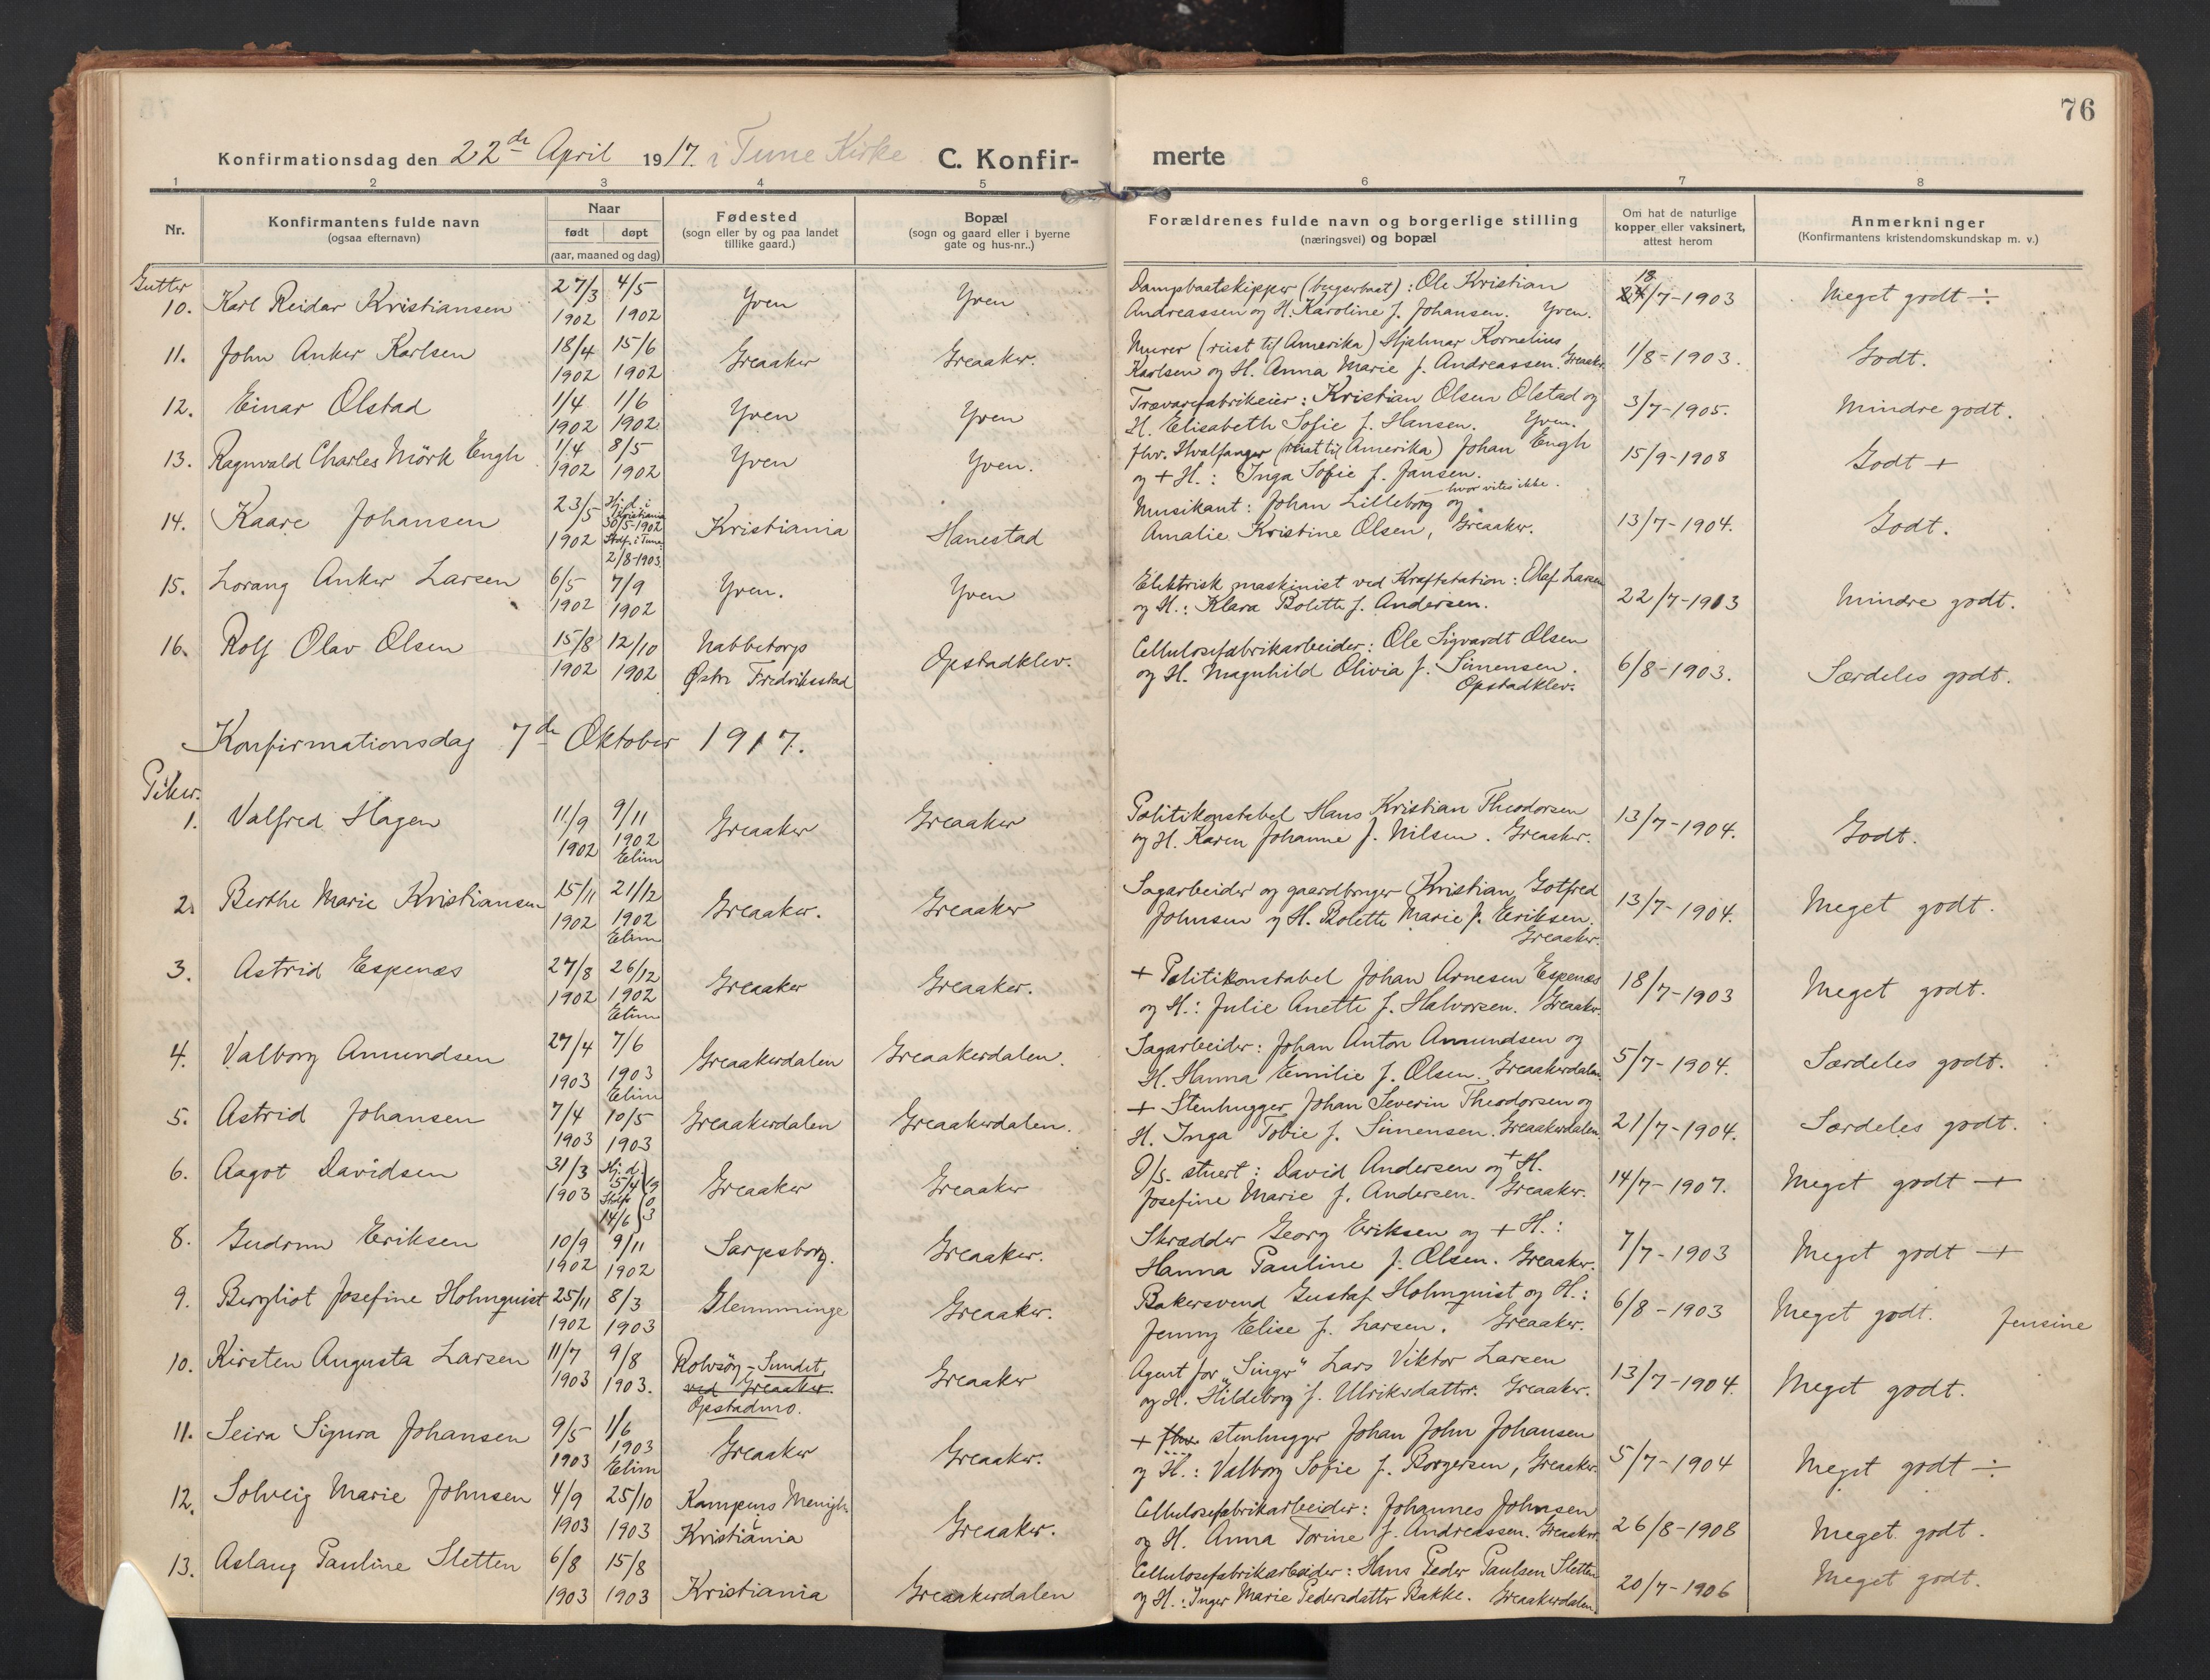 76
Konfirmationsdag den 22de April 1917. i Tune Kirke C. Konfir- merte
1 2 3 4 5 6 7 8
Nr.
Konfirmantens fulde navn
(ogsaa efternavn)
Naar
født døpt
(aar, maaned og dag)
Fødested
(sogn eller by og paa landet
tillike gaard.)
Bopæl
(sogn og gaard eller i byerne
gate og hus-nr..)
Forældrenes fulde navn og borgerlige stilling
(næringsvei) og bopæl
Om hat de naturlige
kopper eller vaksinert,
attest herom
Anmerkninger
(Konfirmantens kristendomskundskap m. v.)
Gutter
10. Karl Reidar Kristiansen 27/3 1902 4/5 1902 Yven Yven
Dampbaatskipper (bugserbaat): Ole Kristian
Andreassen og H. Karoline f. Johansen. Yven.
18/7-1903 Meget godt ÷
11. John Anker Karlsen 18/4 1902 15/6 1902 Greaaker Greaaker.
Murer (reist til Amerika) Hjalmar Kornelius
Karlsen og H. Anna Marie f. Andreassen. Greaaker.
1/8-1903. Godt.
12. Einar Olstad 1/4 1902 1/6 1902 Yven Yven
Trævarefabrikeier: Kristian Olsen Olstad og
H. Elisabeth Sofie f. Hansen. Yven.
3/7-1905. Mindre godt.
13. Ragnvald Charles Mörk Engh 1/4 1902 8/5 1902 Yven Yven.
fhv. Hvalfanger (reist til Amerika) Johan Engh
og + H.: Inga Sofie f. Jansen.
15/9-1908 Godt +
14. Kaare Johansen 23/5 1902 Hj.d. i
Kristiania
30/5-1902
Stdf. i Tune
2/8-1903. Kristiania Hanestad
Musikant: Johan Lilleborg – hvor vites ikke. og
Amalie Kristine Olsen, Greaaker.
13/7-1904. Godt.
15. Lorang Anker Larsen 6/5 1902 7/9 1902 Yven. Yven
Elektrisk maskinist ved Kraftstation: Olaf Larsen
og H.: Klara Bolette f. Andersen.
22/7-1903 Mindre godt.
16. Rolf Olav Olsen 15/8 1902 12/10 1902 Nabbetorp
Østre Fredriksstad Opstadklev.
Cellulosefabrikarbeider: Ole Sigvardt Olsen
og H. Magnhild Olivia f. Simensen.
Opstadklev.
6/8-1903. Særdeles godt.
Konfirmationsdag 7de Oktober 1917.
Piker.
1. Valfred Hagen 11/9 1902 9/11 1902
Elim Greaaker Greaaker
Politikonstabel Hans Kristian Theodorsen
og H. Karen Johanne f. Nilsen. Greaaker.
13/7-1904. Godt.
2. Berthe Marie Kristiansen 15/11 1902 21/12 1902
Elim Greaaker. Greaaker
Sagarbeider og gaardbruger Kristian Gotfred
Johnsen og H. Bolette Marie f. Eriksen.
Greaaker.
13/7-1904. Meget godt.
3. Astrid Espenæs 27/8 1902 26/12 1902
Elim Greaaker Greaaker.
+ Politikonstabel Johan Arnesen Espenæs
og H.: Julie Anette f. Halvorsen. Greaaker.
18/7-1903 Meget godt.
4. Valborg Amundsen 27/4 1903 7/6 1903
Elim Greaakerdalen Greaakerdalen.
Sagarbeider: Johan Anton Amundsen og
H. Hanna Emilie f. Olsen. Greaakerdalen
5/7-1904. Særdeles godt.
5. Astrid Johansen 7/4 1903 10/5 1903 Greaakerdalen Greaakerdalen.
+ Stenhugger Johan Severin Theodorsen og
H. Inga Tobie f. Simensen. Greaakerdalen
21/7-1904. Særdeles godt.
6. Aagot Davidsen 31/3 1903 Hj.d.
15/4
Stdf.
14/6 } 1903 Greaaker Greaaker
D/s. stuert: David Andersen og + H.
Josefine Marie f. Andersen. Greaaker.
14/7-1907. Meget godt +
8. Gudrun Eriksen 10/9 1902 9/11 1902 Sarpsborg. Greaaker.
Skrædder Georg Eriksen og + H.:
Hanna Pauline f. Olsen. Greaaker.
7/7-1903 Meget godt +
9. Bergliot Josefine Holmquist 25/11 1902 8/3 1903 Glemminge Greaaker.
Bakersvend Gustaf Holmquist og H.:
Jenny Elise f. Larsen. Greaaker.
6/8-1903 Meget godt. Jensine
10. Kirsten Augusta Larsen 11/7 1903 9/8 1903. Rolvsöy-Sundet,
ved Greaaker.
Opstadmo. Greaaker
Agent for „Singer" Lars Viktor Larsen
og H. Hildeborg f. Ulriksdatter. Greaaker.
13/7-1904. Meget godt.
11. Seira Signra Johansen 9/5 1903 1/6 1903
Elim Greaaker Greaaker.
+ fhv. stenhugger Johan John Johansen
og H.: Valborg Sofie f. Borgersen, Greaaker.
5/7-1904 Meget godt ÷
12. Solveig Marie Johnsen 4/9 1903 25/10 1903 Kampens Menigh.
i
Kristiania Greaaker.
Cellulosefabrikarbeider: Johannes Johnsen
og H. Anna Torine f. Andreassen. Greaaker.
26/8-1908 Meget godt.
13. Aslaug Pauline Sletten 6/8 1903 15/8 1903 Kristiania Greaakerdalen
Cellulosefabrikarbeider: Hans Peder Paulsen Sletten
og H.: Inger Marie Pedersdatter Bakke. Greaakerdalen.
20/7-1906 Meget godt.